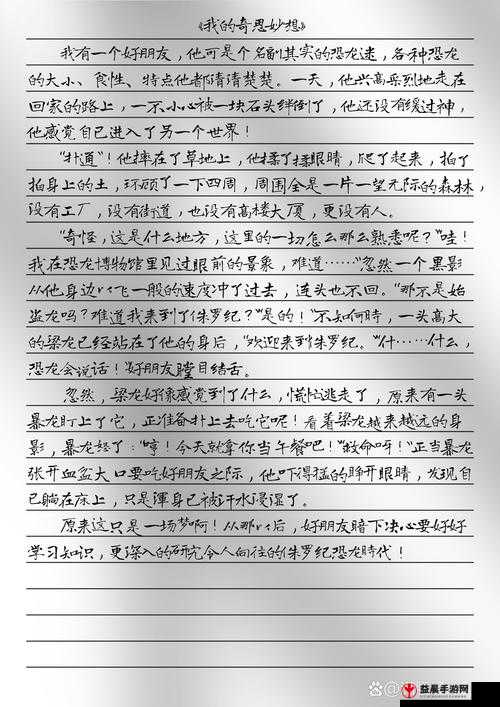 《我的奇思妙想》
我有一个好朋友，他可是个名副其实的恐龙迷，各种恐龙
的大小、食性、特点他都清清楚楚。一天，他兴高采烈地走在
回家的路上，一不小心被一块石头绊倒了，他还没有缓过神，
他感觉自己进入了另一个世界！
“扑通”！他摔在了草地上，他揉了揉眼睛，爬了起来，拍了
拍身上的土，环顾了一下四周，周围全是一片一望无际的森林，
没有工厂，没有街道，也没有高楼大厦，更没有人。
“奇怪，这是什么地方，这里的一切怎么那么熟悉呢？”哇！
我在恐龙博物馆里见过眼前的景象，难道……”忽然一个黑影
从他身边以飞一般的速度冲了过去，连头也不回。“那不是始
盗龙吗？难道我来到了侏罗纪？”是的！”不知何時，一头高大
的梁龙已经站在了他的身后，“欢迎来到侏罗纪。”什……什么，
恐龙会说话！”好朋友瞠目结舌。
忽然，梁龙好像感觉到了什么，慌忙逃走了，原来有一头
暴龙盯上了它，正准备扑上去吃它呢！看着梁龙越来越远的身
影，暴龙怒了：“哼！今天就拿你当午餐吧！”“救命呀！”正当暴龙
张开血盆大口要吃好朋友之际，他吓得猛的睁开眼睛，发现自
己躺在床上，只是渾身已被汗水浸湿了。
原来这只是一场梦啊！从那以后，好朋友暗下决心要好好
学习知识，更深入的研究令人向往的侏罗纪恐龙時代！
益晨手游网